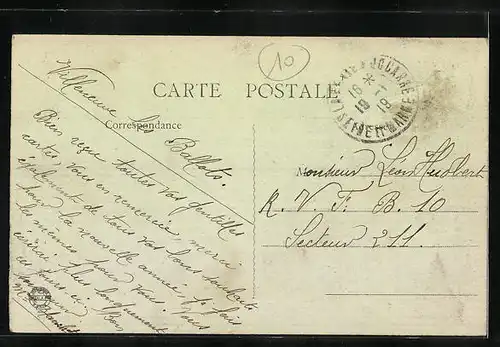 10
CARTE POSTALE
Correspondance
Villeneuve les Ballots.
Bien reçu toutes vos gentilles
cartes, vous en remercie, merci
également de tous vos bons souhaits
pour la nouvelle année, je fais
les mêmes pour vous. Vous
écrirai plus longuement
ces jours ci. Bon
JOUARRE
16 - 1
19 19
SEINE ET MARNE
Monsieur Léon Huobert
R. V. F. B. 10
Secteur 211.